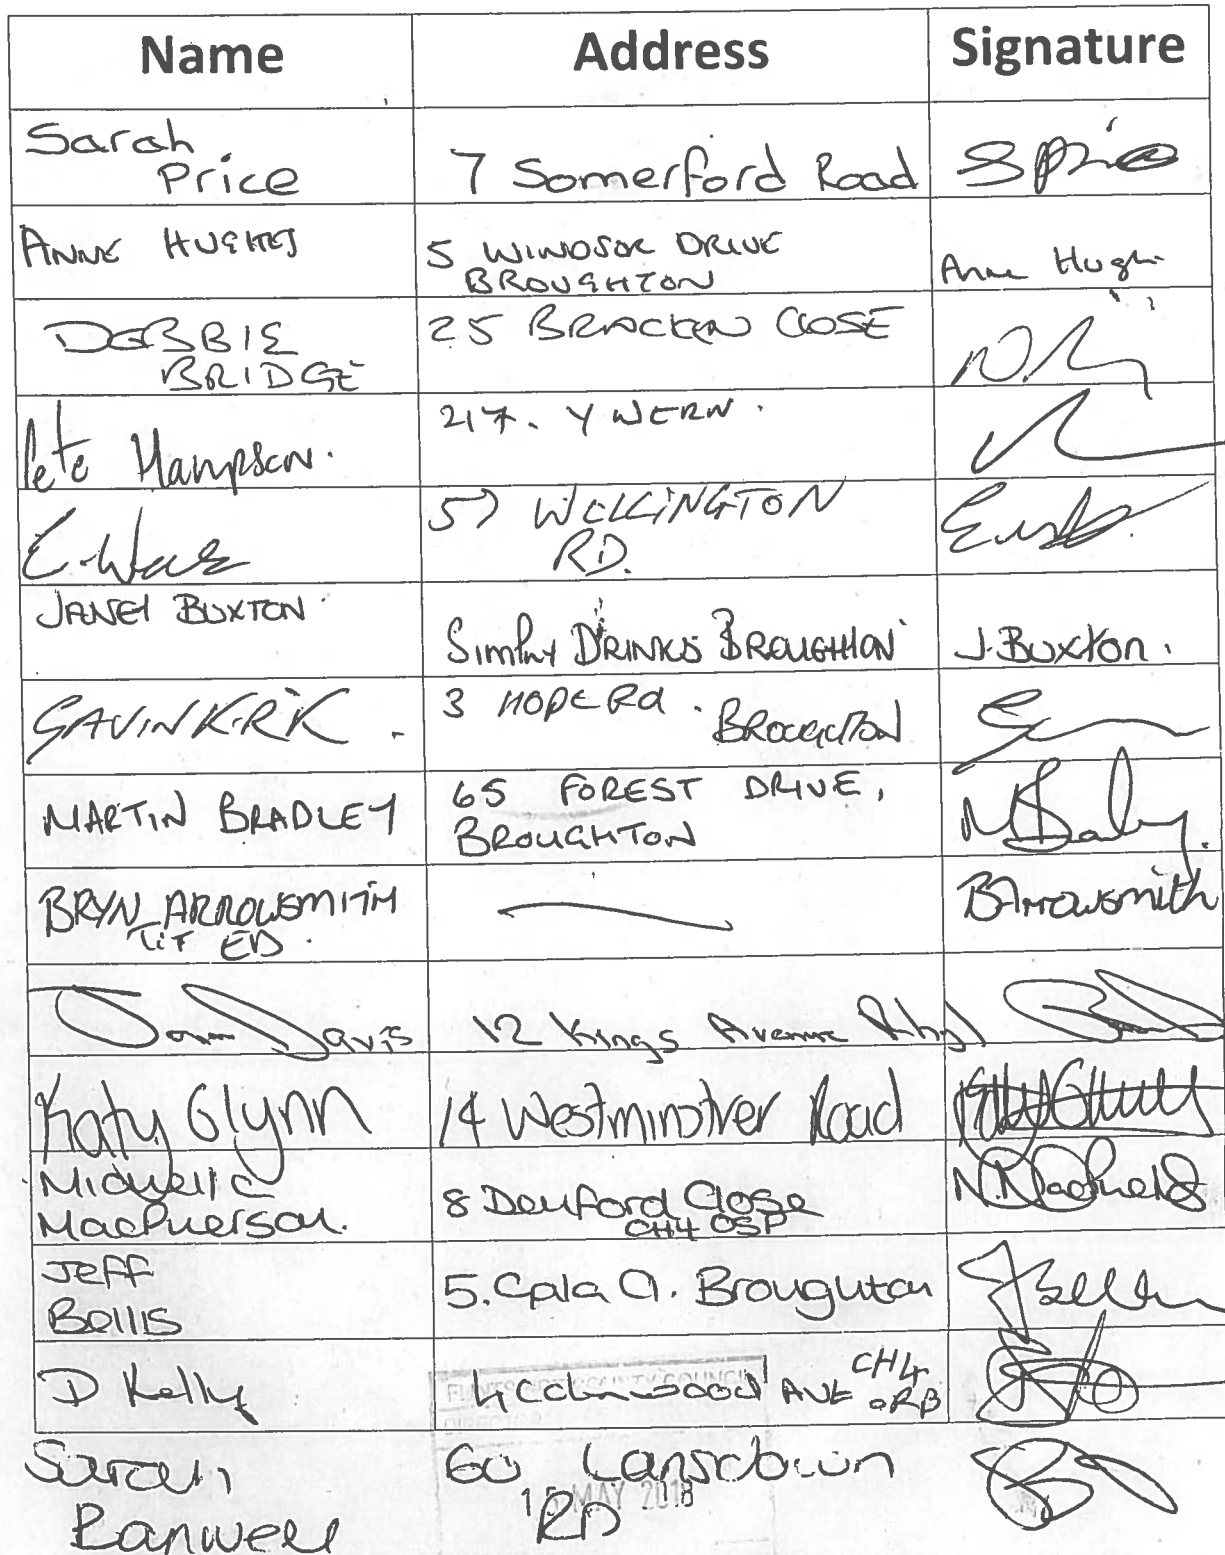 Name Address Signature
Sarah
Price
7 Somerford Road
S Price
ANNE HUGHES
5 WINDSOR DRIVE
BROUGHTON
Anne Hughes
DEBBIE
BRIDGE
25 BRACKEN CLOSE
Pete Hampson.
217. Y WERN.
57 WELLINGTON
RD.
JANET BUXTON
SIMPLY DRINKS BROUGHTON
J. BUXTON.
GAVIN KIRK.
3 HOPE Rd. BROUGHTON
MARTIN BRADLEY
65 FOREST DRIVE,
BROUGHTON
BRYN ARROWSMITH
BArrowsmith
Davis
12 Kings Avenue Rhyl
Katy Glynn
14 Westminster Road
Katy Glynn
Michelle
MacPherson.
8 Denford Close
CH4 0SP
Jeff
Bellis
5. Cala Cl. Broughton
JBellis
D Kelly
AVE CH4
0RB
FLINTSHIRE COUNTY COUNCIL
Sarah
Banwell
60 Lansdown
RD
15 MAY 2018